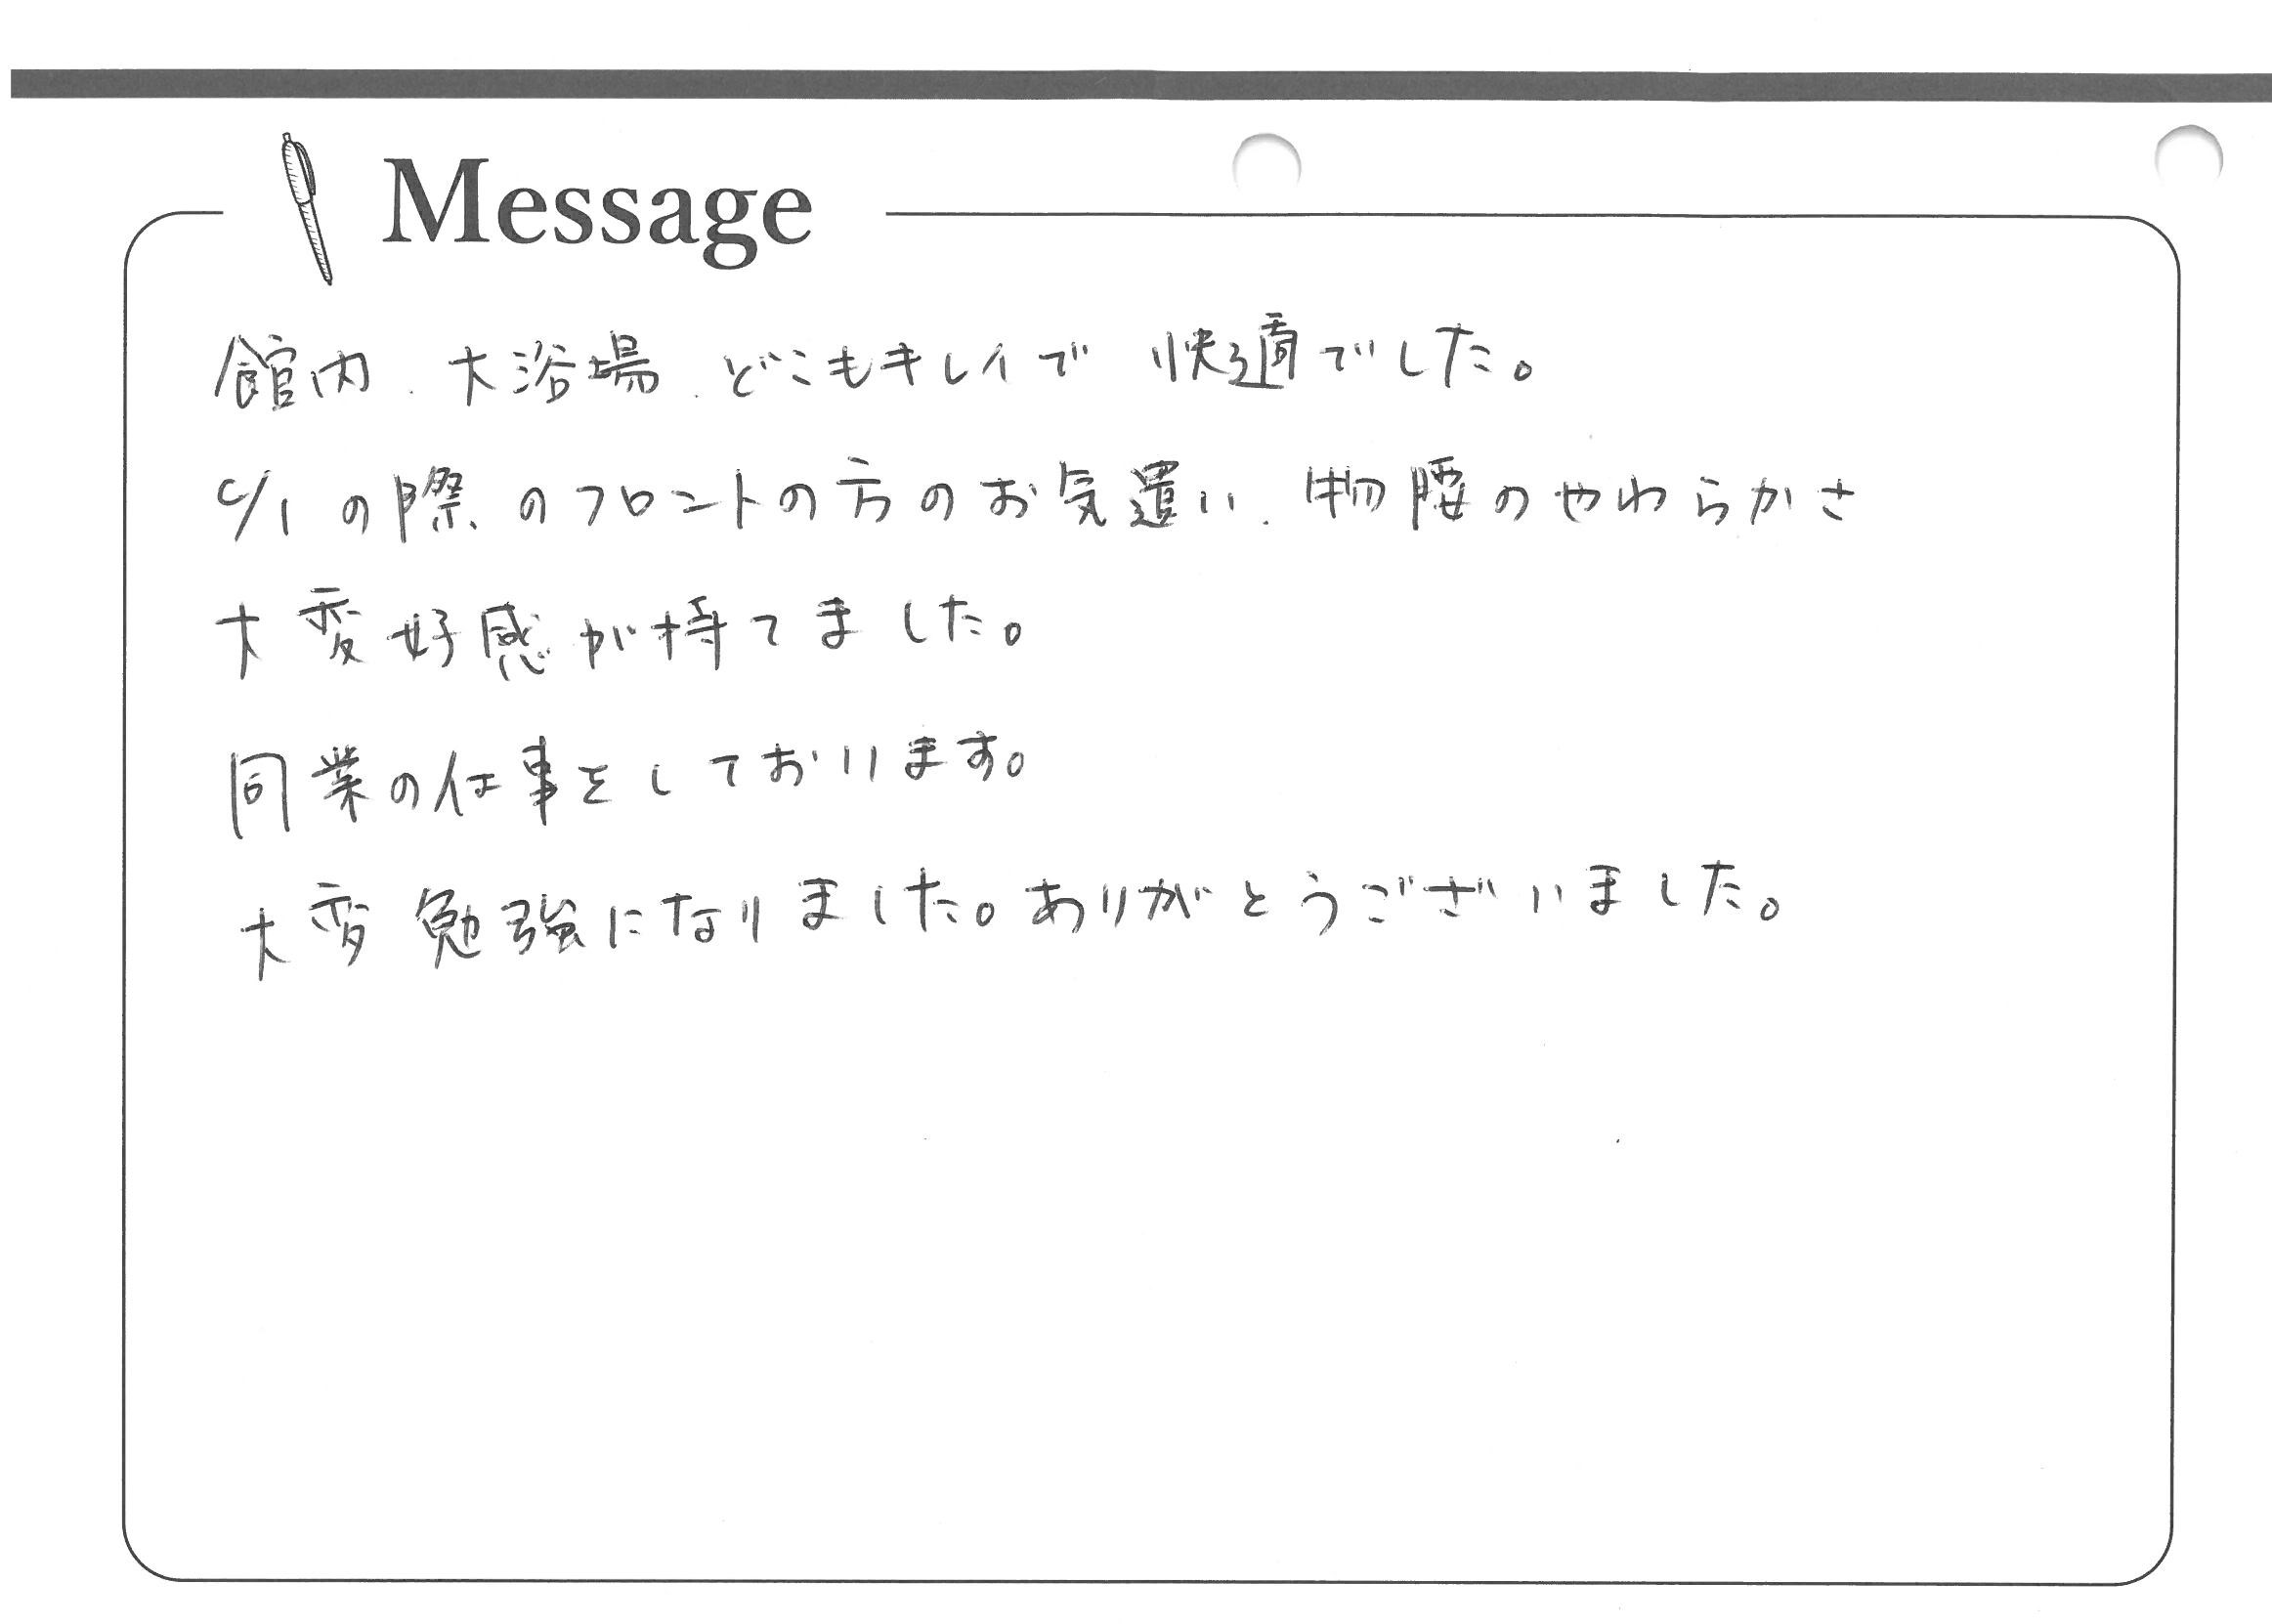 Message
館内、大浴場、どこもキレイで 快適でした。
C/Iの際のフロントの方のお気遣い、物腰のやわらかさ
大変好感が持てました。
同業の仕事をしております。
大変勉強になりました。ありがとうございました。